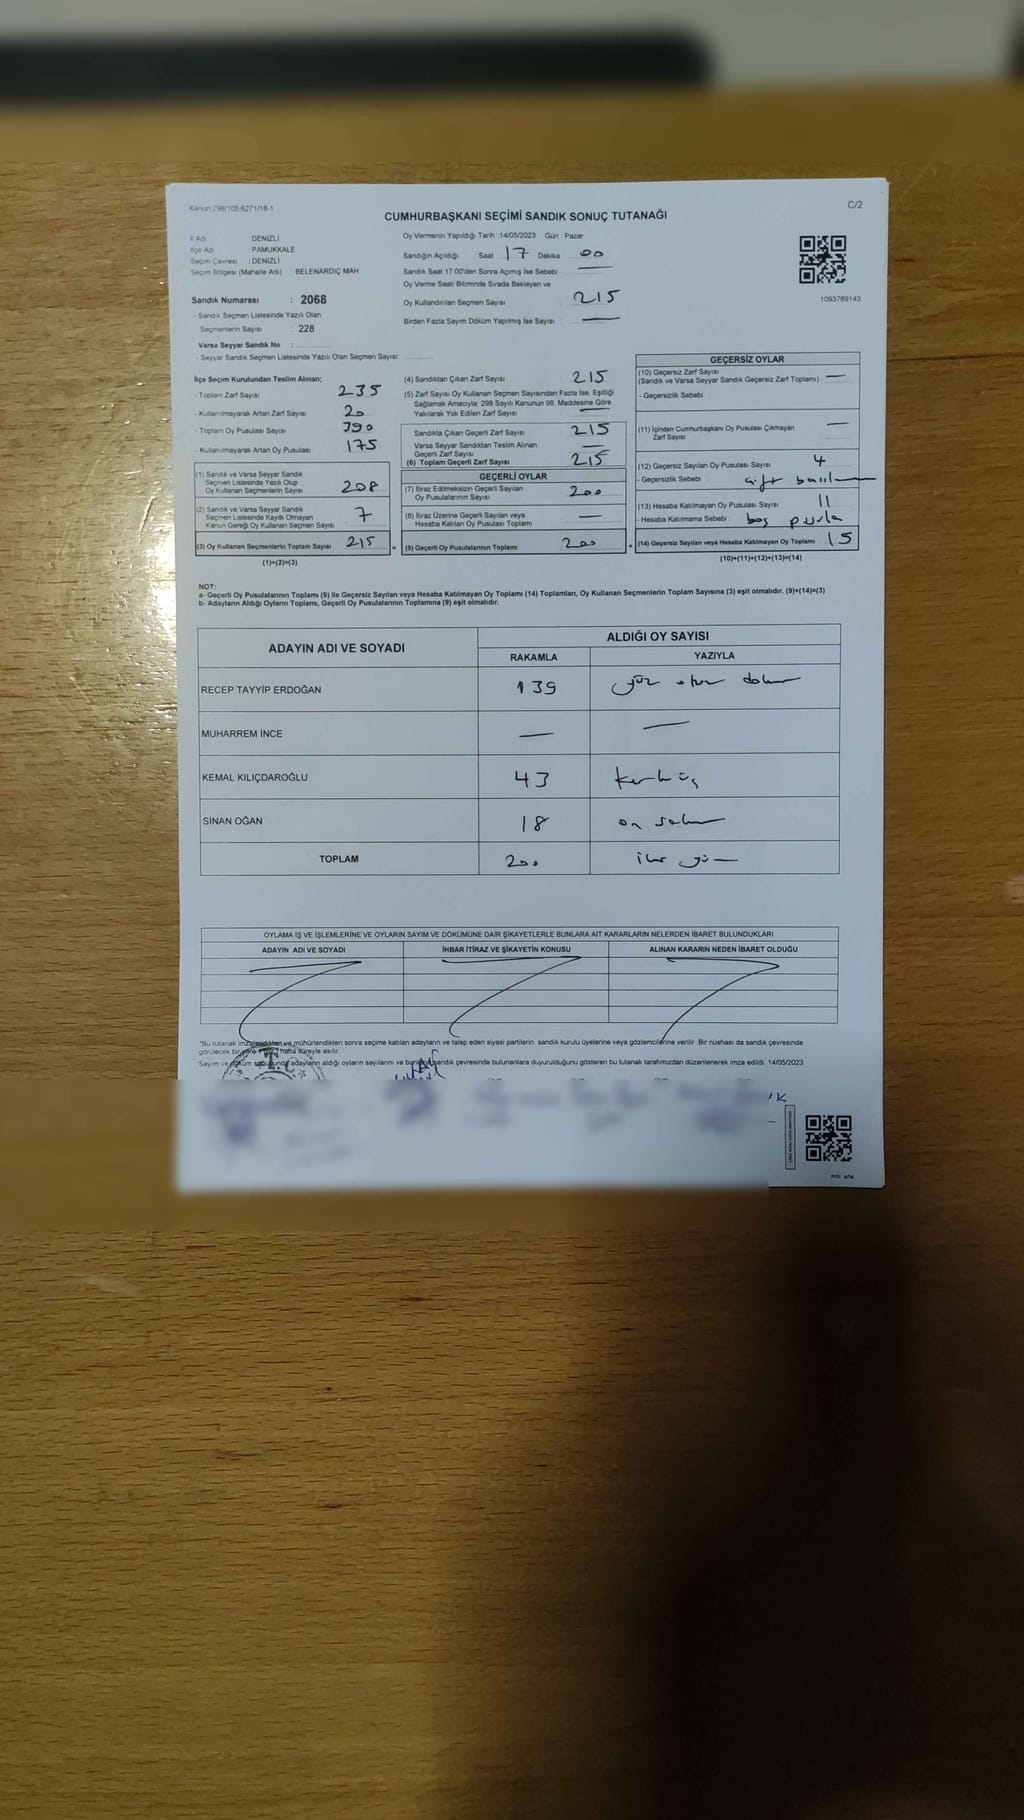 Kanun:298/105,6271/18-1
C/2
CUMHURBAŞKANI SEÇİMİ SANDIK SONUÇ TUTANAĞI
İl Adı : DENİZLİ
İlçe Adı : PAMUKKALE
Seçim Çevresi : DENİZLİ
Seçim Bölgesi (Mahalle Adı) : BELENARDIÇ MAH
Sandık Numarası : 2068
- Sandık Seçmen Listesinde Yazılı Olan
Seçmenlerin Sayısı : 228
Varsa Seyyar Sandık No :
- Seyyar Sandık Seçmen Listesinde Yazılı Olan Seçmen Sayısı:
Oy Vermenin Yapıldığı Tarih :14/05/2023 Gün : Pazar
Sandığın Açıldığı Saat 17 Dakika 00
Sandık Saat 17:00'den Sonra Açılmış İse Sebebi —
Oy Verme Saati Bitiminde Sırada Bekleyen ve
Oy Kullandırılan Seçmen Sayısı 215
Birden Fazla Sayım Döküm Yapılmış İse Sayısı —
1093789143
İlçe Seçim Kurulundan Teslim Alınan;
- Toplam Zarf Sayısı 235
- Kullanılmayarak Artan Zarf Sayısı 20
- Toplam Oy Pusulası Sayısı 390
- Kullanılmayarak Artan Oy Pusulası 175
(1) Sandık ve Varsa Seyyar Sandık
Seçmen Listesinde Yazılı Olup
Oy Kullanan Seçmenlerin Sayısı 208
(2) Sandık ve Varsa Seyyar Sandık
Seçmen Listesinde Kayıtlı Olmayan
Kanun Gereği Oy Kullanan Seçmen Sayısı 7
(3) Oy Kullanan Seçmenlerin Toplam Sayısı 215
(1)+(2)=(3)
(4) Sandıktan Çıkan Zarf Sayısı 215
(5) Zarf Sayısı Oy Kullanan Seçmen Sayısından Fazla İse, Eşitliği
Sağlamak Amacıyla; 298 Sayılı Kanunun 98. Maddesine Göre
Yakılarak Yok Edilen Zarf Sayısı —
Sandıkta Çıkan Geçerli Zarf Sayısı 215
Varsa Seyyar Sandıktan Teslim Alınan
Geçerli Zarf Sayısı —
(6) Toplam Geçerli Zarf Sayısı 215
GEÇERLİ OYLAR
(7) İtiraz Edilmeksizin Geçerli Sayılan
Oy Pusulalarının Sayısı 200
(8) İtiraz Üzerine Geçerli Sayılan veya
Hesaba Katılan Oy Pusulası Toplamı —
= (9) Geçerli Oy Pusulalarının Toplamı 200 +
GEÇERSİZ OYLAR
(10) Geçersiz Zarf Sayısı
(Sandık ve Varsa Seyyar Sandık Geçersiz Zarf Toplamı) —
- Geçersizlik Sebebi
(11) İçinden Cumhurbaşkanı Oy Pusulası Çıkmayan
Zarf Sayısı —
(12) Geçersiz Sayılan Oy Pusulası Sayısı 4
- Geçersizlik Sebebi çift
(13) Hesaba Katılmayan Oy Pusulası Sayısı 11
- Hesaba Katılmama Sebebi boş pusula
(14) Geçersiz Sayılan veya Hesaba Katılmayan Oy Toplamı 15
(10)+(11)+(12)+(13)=(14)
NOT:
a- Geçerli Oy Pusulalarının Toplamı (9) ile Geçersiz Sayılan veya Hesaba Katılmayan Oy Toplamı (14) Toplamları, Oy Kullanan Seçmenlerin Toplam Sayısına (3) eşit olmalıdır. (9)+(14)=(3)
b- Adayların Aldığı Oyların Toplamı, Geçerli Oy Pusulalarının Toplamına (9) eşit olmalıdır.
ADAYIN ADI VE SOYADI
ALDIĞI OY SAYISI
RAKAMLA YAZIYLA
RECEP TAYYİP ERDOĞAN 139 yüz otuz dokuz
MUHARREM İNCE — —
KEMAL KILIÇDAROĞLU 43 kırk üç
SİNAN OĞAN 18 on sekiz
TOPLAM 200 iki yüz
OYLAMA İŞ VE İŞLEMLERİNE VE OYLARIN SAYIM VE DÖKÜMÜNE DAİR ŞİKAYETLERLE BUNLARA AİT KARARLARIN NELERDEN İBARET BULUNDUKLARI
ADAYIN ADI VE SOYADI İHBAR İTİRAZ VE ŞİKAYETİN KONUSU ALINAN KARARIN NEDEN İBARET OLDUĞU
*Bu tutanak imzalandıktan ve mühürlendikten sonra seçime katılan adayların ve talep eden siyasi partilerin sandık kurulu üyelerine veya gözlemcilerine verilir. Bir nüshası da sandık çevresinde
görülecek bir yere hafta süreyle asılır.
Sayım ve döküm sonucunda adayların aldığı oyların sayılarını ve bunların sandık çevresinde bulunanlara duyurulduğunu gösteren bu tutanak tarafımızdan düzenlenerek imza edildi. 14/05/2023
T.C.